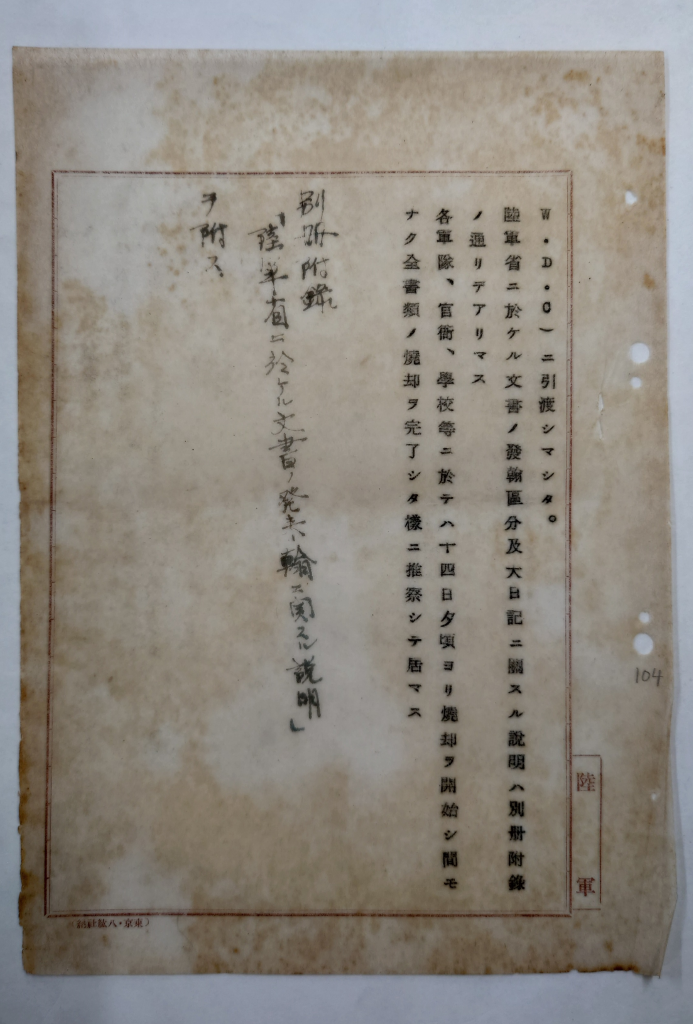 W・D・C)ニ引渡シマシタ。
陸軍省ニ於ケル文書ノ發翰區分及大日記ニ關スル說明ハ別册附錄
ノ通リデアリマス
各軍隊、官衙、學校等ニ於テハ十四日夕頃ヨリ燒却ヲ開始シ間モ
ナク全書類ノ燒却ヲ完了シタ樣ニ推察シテ居マス
別冊附錄
「陸軍省ニ於ケル文書ノ発来翰ニ関スル説明」
ヲ附ス
104
陸軍